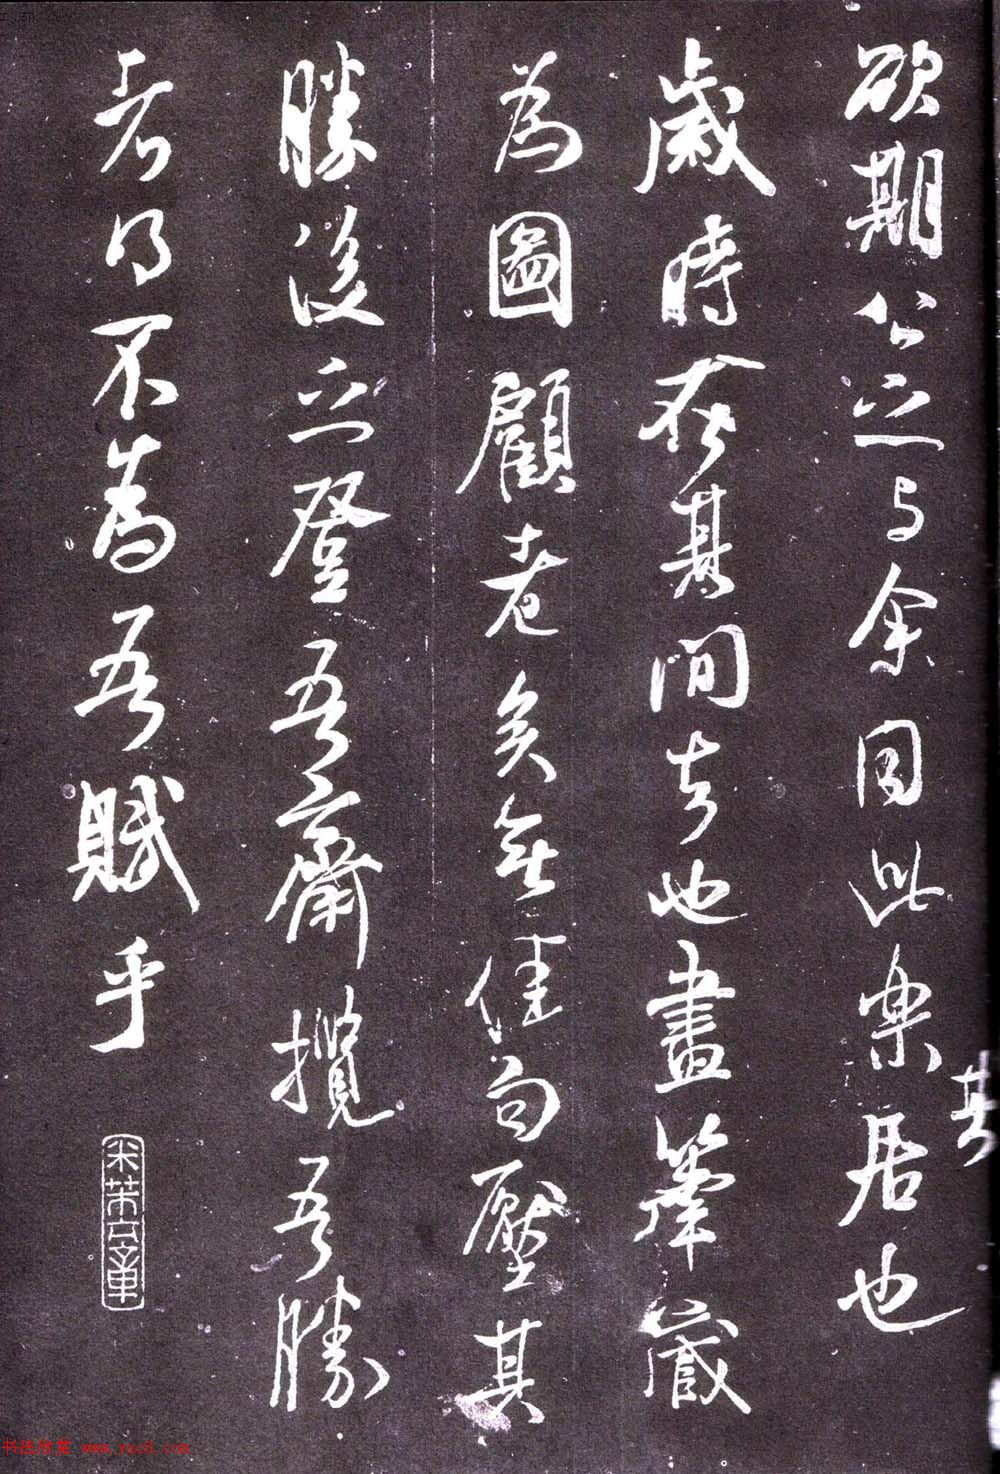 欲期公之与余同此樂居也
其
歲時在其間者也畫筆嚴
為圖顧老矣無佳句壓其
勝後之登吾齋攬吾勝
者得不為吾賦乎
米芾之章
书法欣赏 www.yac8.com